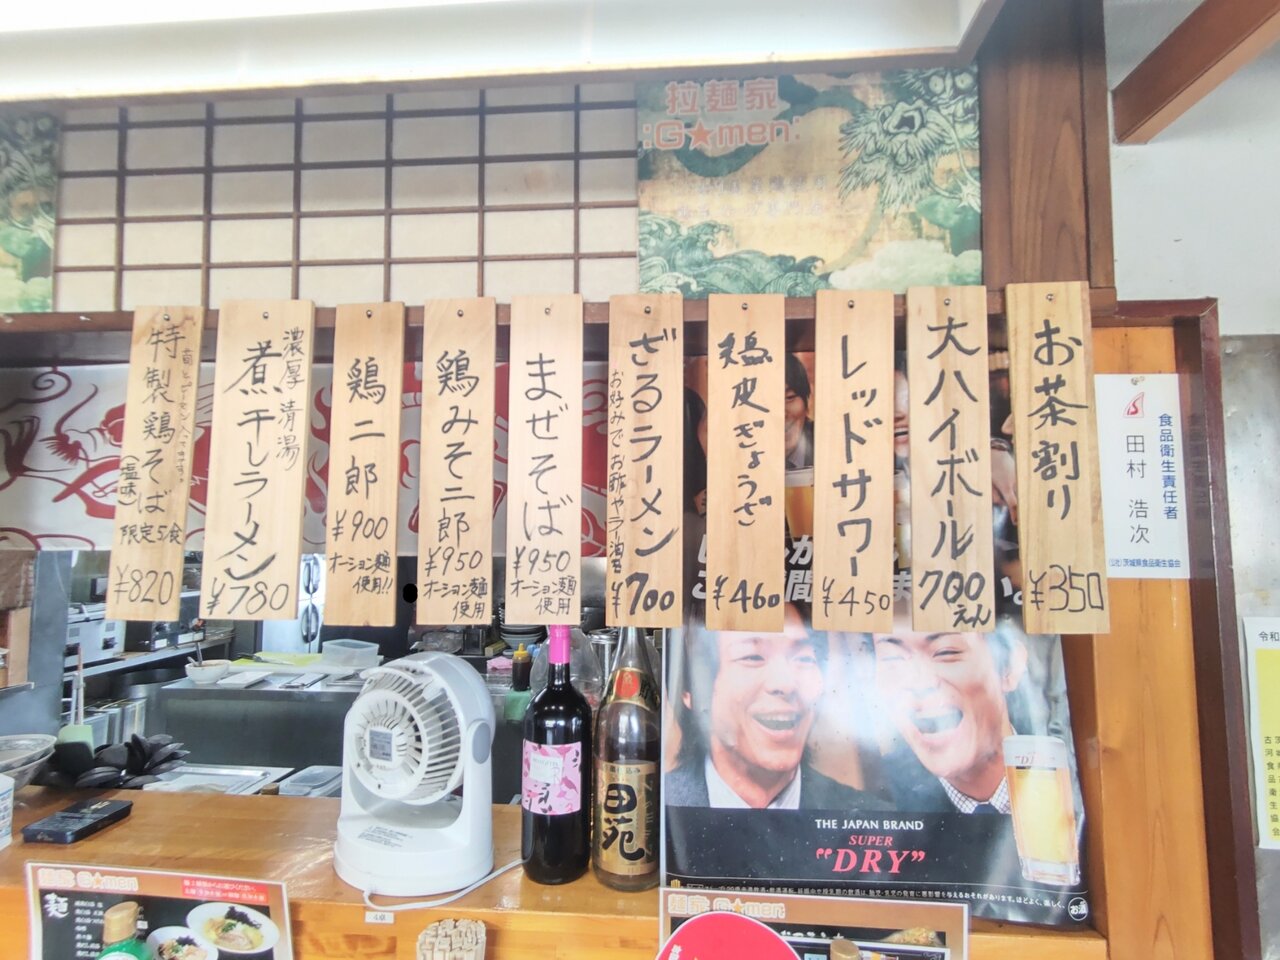 拉麺家
:G★men:
お茶割り
¥350
大ハイボール
700
えん
レッドサワー
¥450
鶏皮ぎょうざ
¥460
ざるラーメン
お好みでお酢やラー油を
¥700
まぜそば
¥950
オーション麺
使用
鶏みそ二郎
¥950
オーション麺
使用
鶏二郎
¥900
オーション麺
使用!!
濃厚 清湯
煮干しラーメン
¥780
特製鶏そば
(塩味)
限定5食
¥820
食品衛生責任者
田村 浩次
(公社)茨城県食品衛生協会
令和
古河食品衛生協会
田苑
THE JAPAN BRAND
SUPER
"DRY"
お酒
4卓
拉麺家 G★men:
麺
拉麺家 G★men: